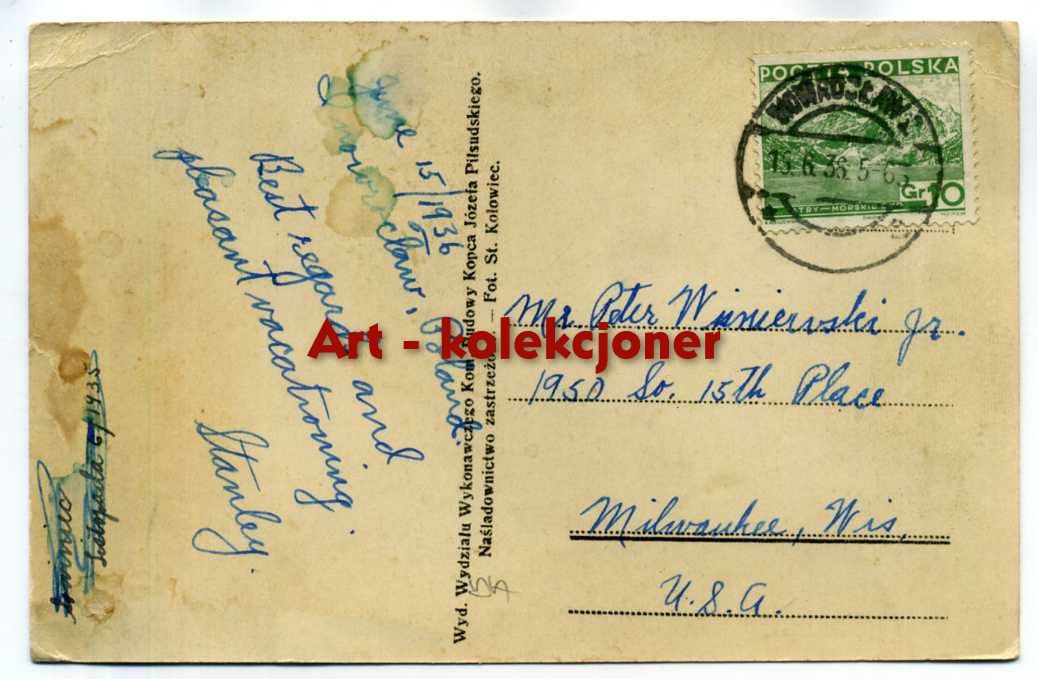 June 15/1936
Inowrocław, Poland.
Best regards and
pleasant vacationing.
Stanley.
Listopada 6/1935
Wyd. Wydziału Wykonawczego Kom. Budowy Kopca Józefa Piłsudskiego.
Naśladownictwo zastrzeżo. — Fot. St. Kolowiec.
POCZTA POLSKA
INOWROCŁAW 2
15.6.36.5-6
Gr. 10
TRY—MORSKIE
Mr. Peter Wisniewski Jr.
1950 So. 15th Place
Milwaukee, Wis,
U.S.A.
Art - kolekcjoner